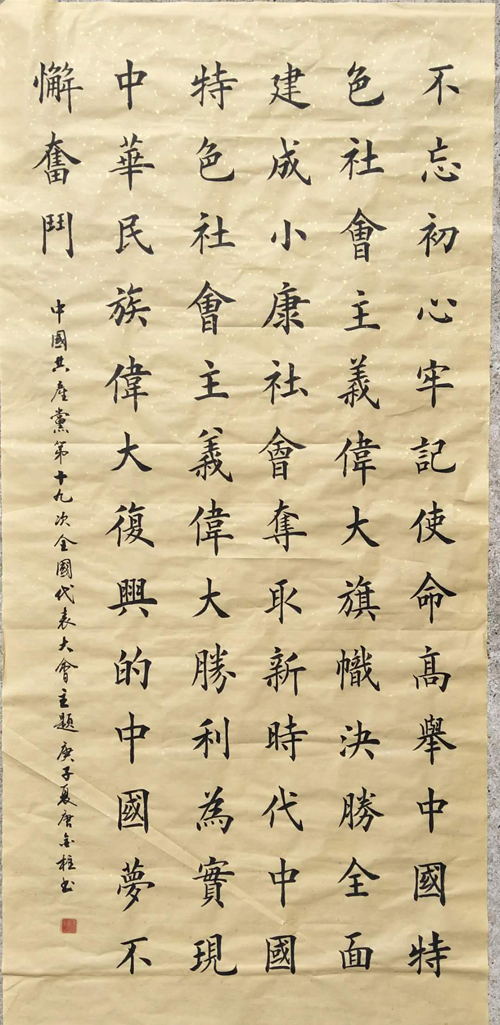 不忘初心牢記使命高舉中國特
色社會主義偉大旗幟決勝全面
建成小康社會奪取新時代中國
特色社會主義偉大勝利為實現
中華民族偉大復興的中國夢不
懈奮鬥
中國共產黨第十九次全國代表大會主題庚子夏唐金柱書